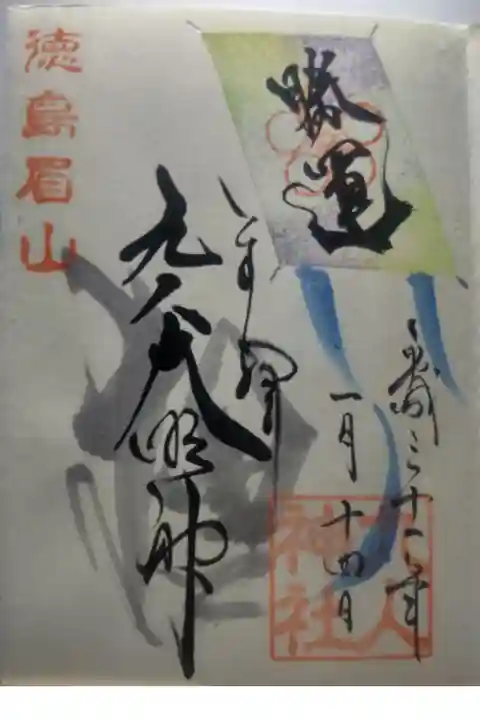 勝運
平成三十一年
一月十四日
天神社
明神
徳島眉山